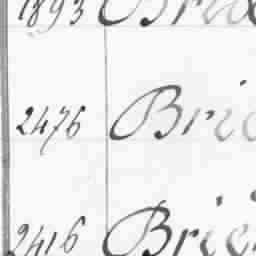 1893 Brie
2476 Brie
2416 Brie